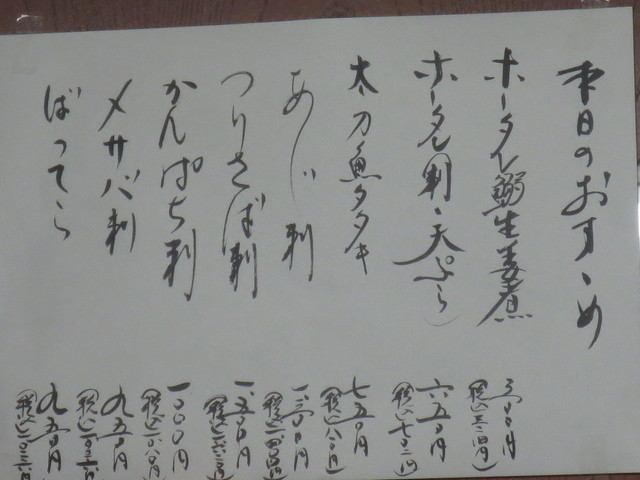 本日のおすゝめ
ホータレ鰯生姜煮 三〇〇円
(税込三二四円)
ホータレ(刺・天ぷら) 六五〇円
(税込七〇二円)
太刀魚タタキ 七五〇円
(税込八一〇円)
あじ刺 一、三〇〇円
(税込一、四〇四円)
つりさば刺 一、五〇〇円
(税込一、六二〇円)
かんぱち刺 一〇〇〇円
(税込一、〇八〇円)
〆サバ刺 九五〇円
(税込一、〇二六円)
ばってら 九五〇円
(税込一、〇二六円)